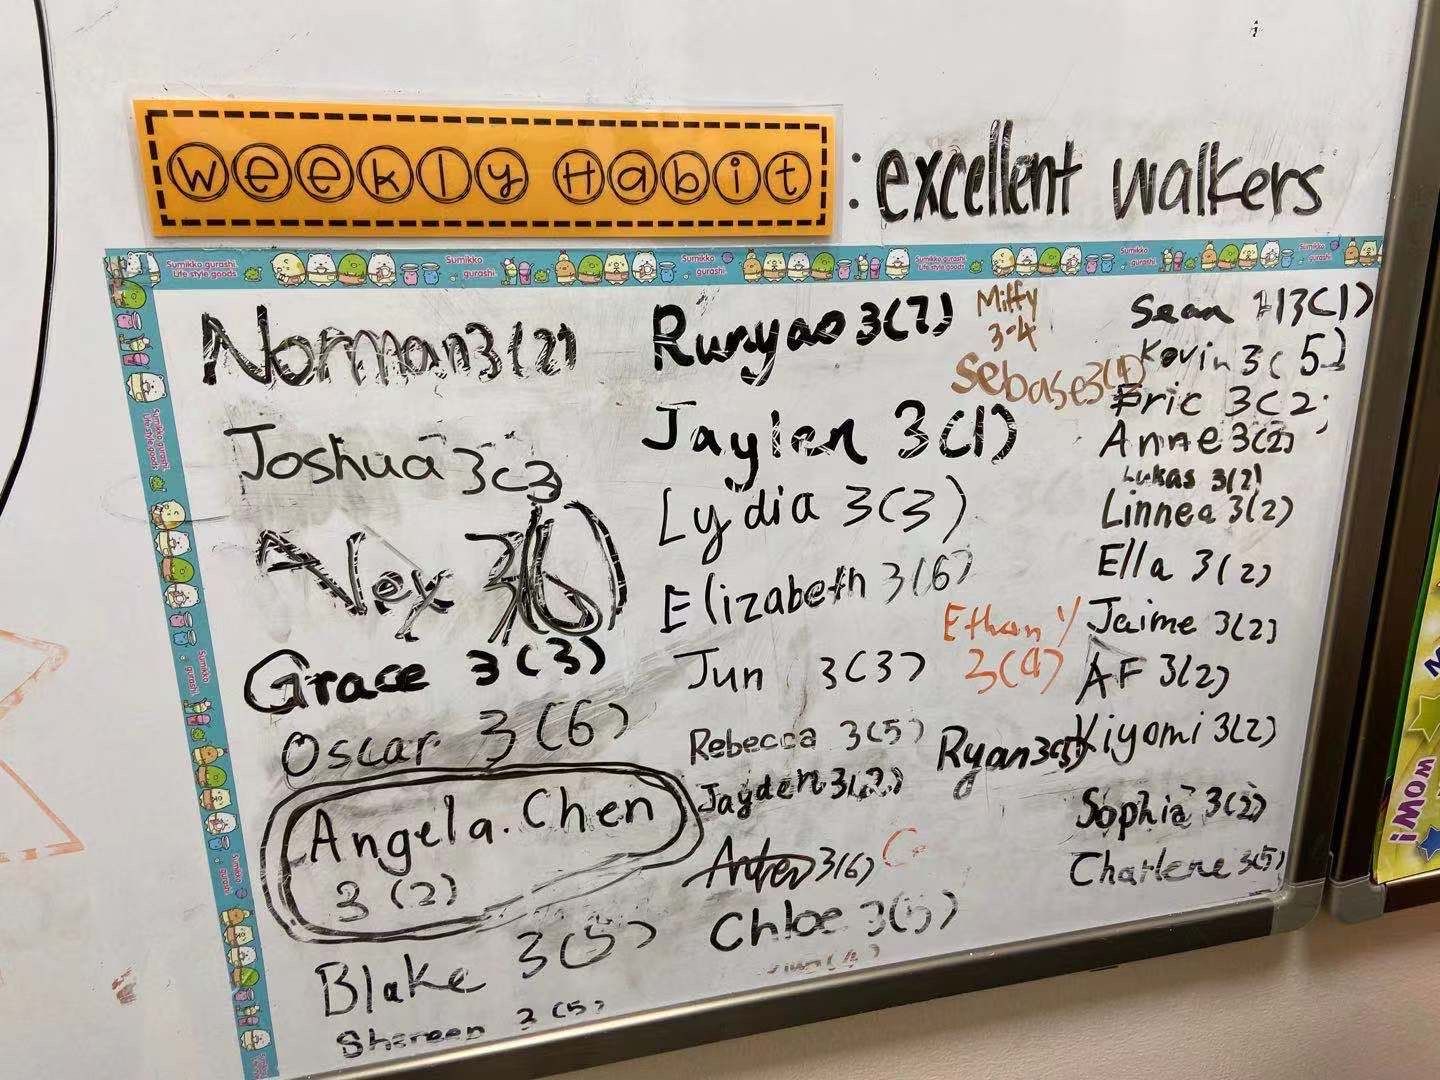 Weekly Habit : excellent walkers
Sumikko gurashi
Life style goods
Sumikko
gurashi
Sumikko
gurashi
Sumikko gurashi
Life style goods
Sumikko
gurashi
Sumikko
gurashi
Norman 3(2)
Joshua 3(3)
Alex 3(6)
Grace 3(3)
Oscar 3(6)
Angela. Chen
3(2)
Blake 3(5)
Shereen 3(5)
Runyao 3(7)
Jaylen 3(1)
Lydia 3(3)
Elizabeth 3(6)
Jun 3(3)
Rebecca 3(5)
Jayden 3(2)
3(6)
Chloe 3(5)
Miffy
3-4
Sebase 3(4)
Ethan Y
3(4)
Ryan 3(5)
Sean 3(1)
Kevin 3(5)
Eric 3(2)
Anne 3(2)
Lukas 3(2)
Linnea 3(2)
Ella 3(2)
Jaime 3(2)
AF 3(2)
Kiyomi 3(2)
Sophia 3(2)
Charlene 3(5)
WOW!